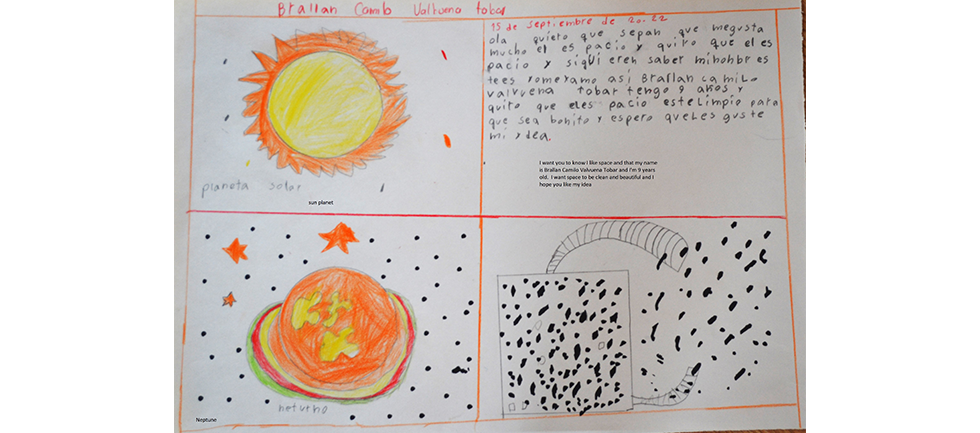 Brallan Camilo Valvuena tobar
15 de septiembre de 2022
ola quiero que sepan que megusta
mucho el es pacio y quiro que el es
pacio y siquieren saber minohbr es
tees romeyamo así Brallan camilo
valvuena tobar tengo 9 años y
quito que eles pacio estelimpio para
que sea bonito y espero queles guste
mi ydea.
I want you to know I like space and that my name
is Brallan Camilo Valvuena Tobar and I'm 9 years
old. I want space to be clean and beautiful and I
hope you like my idea
planeta solar
sun planet
neturno
Neptune